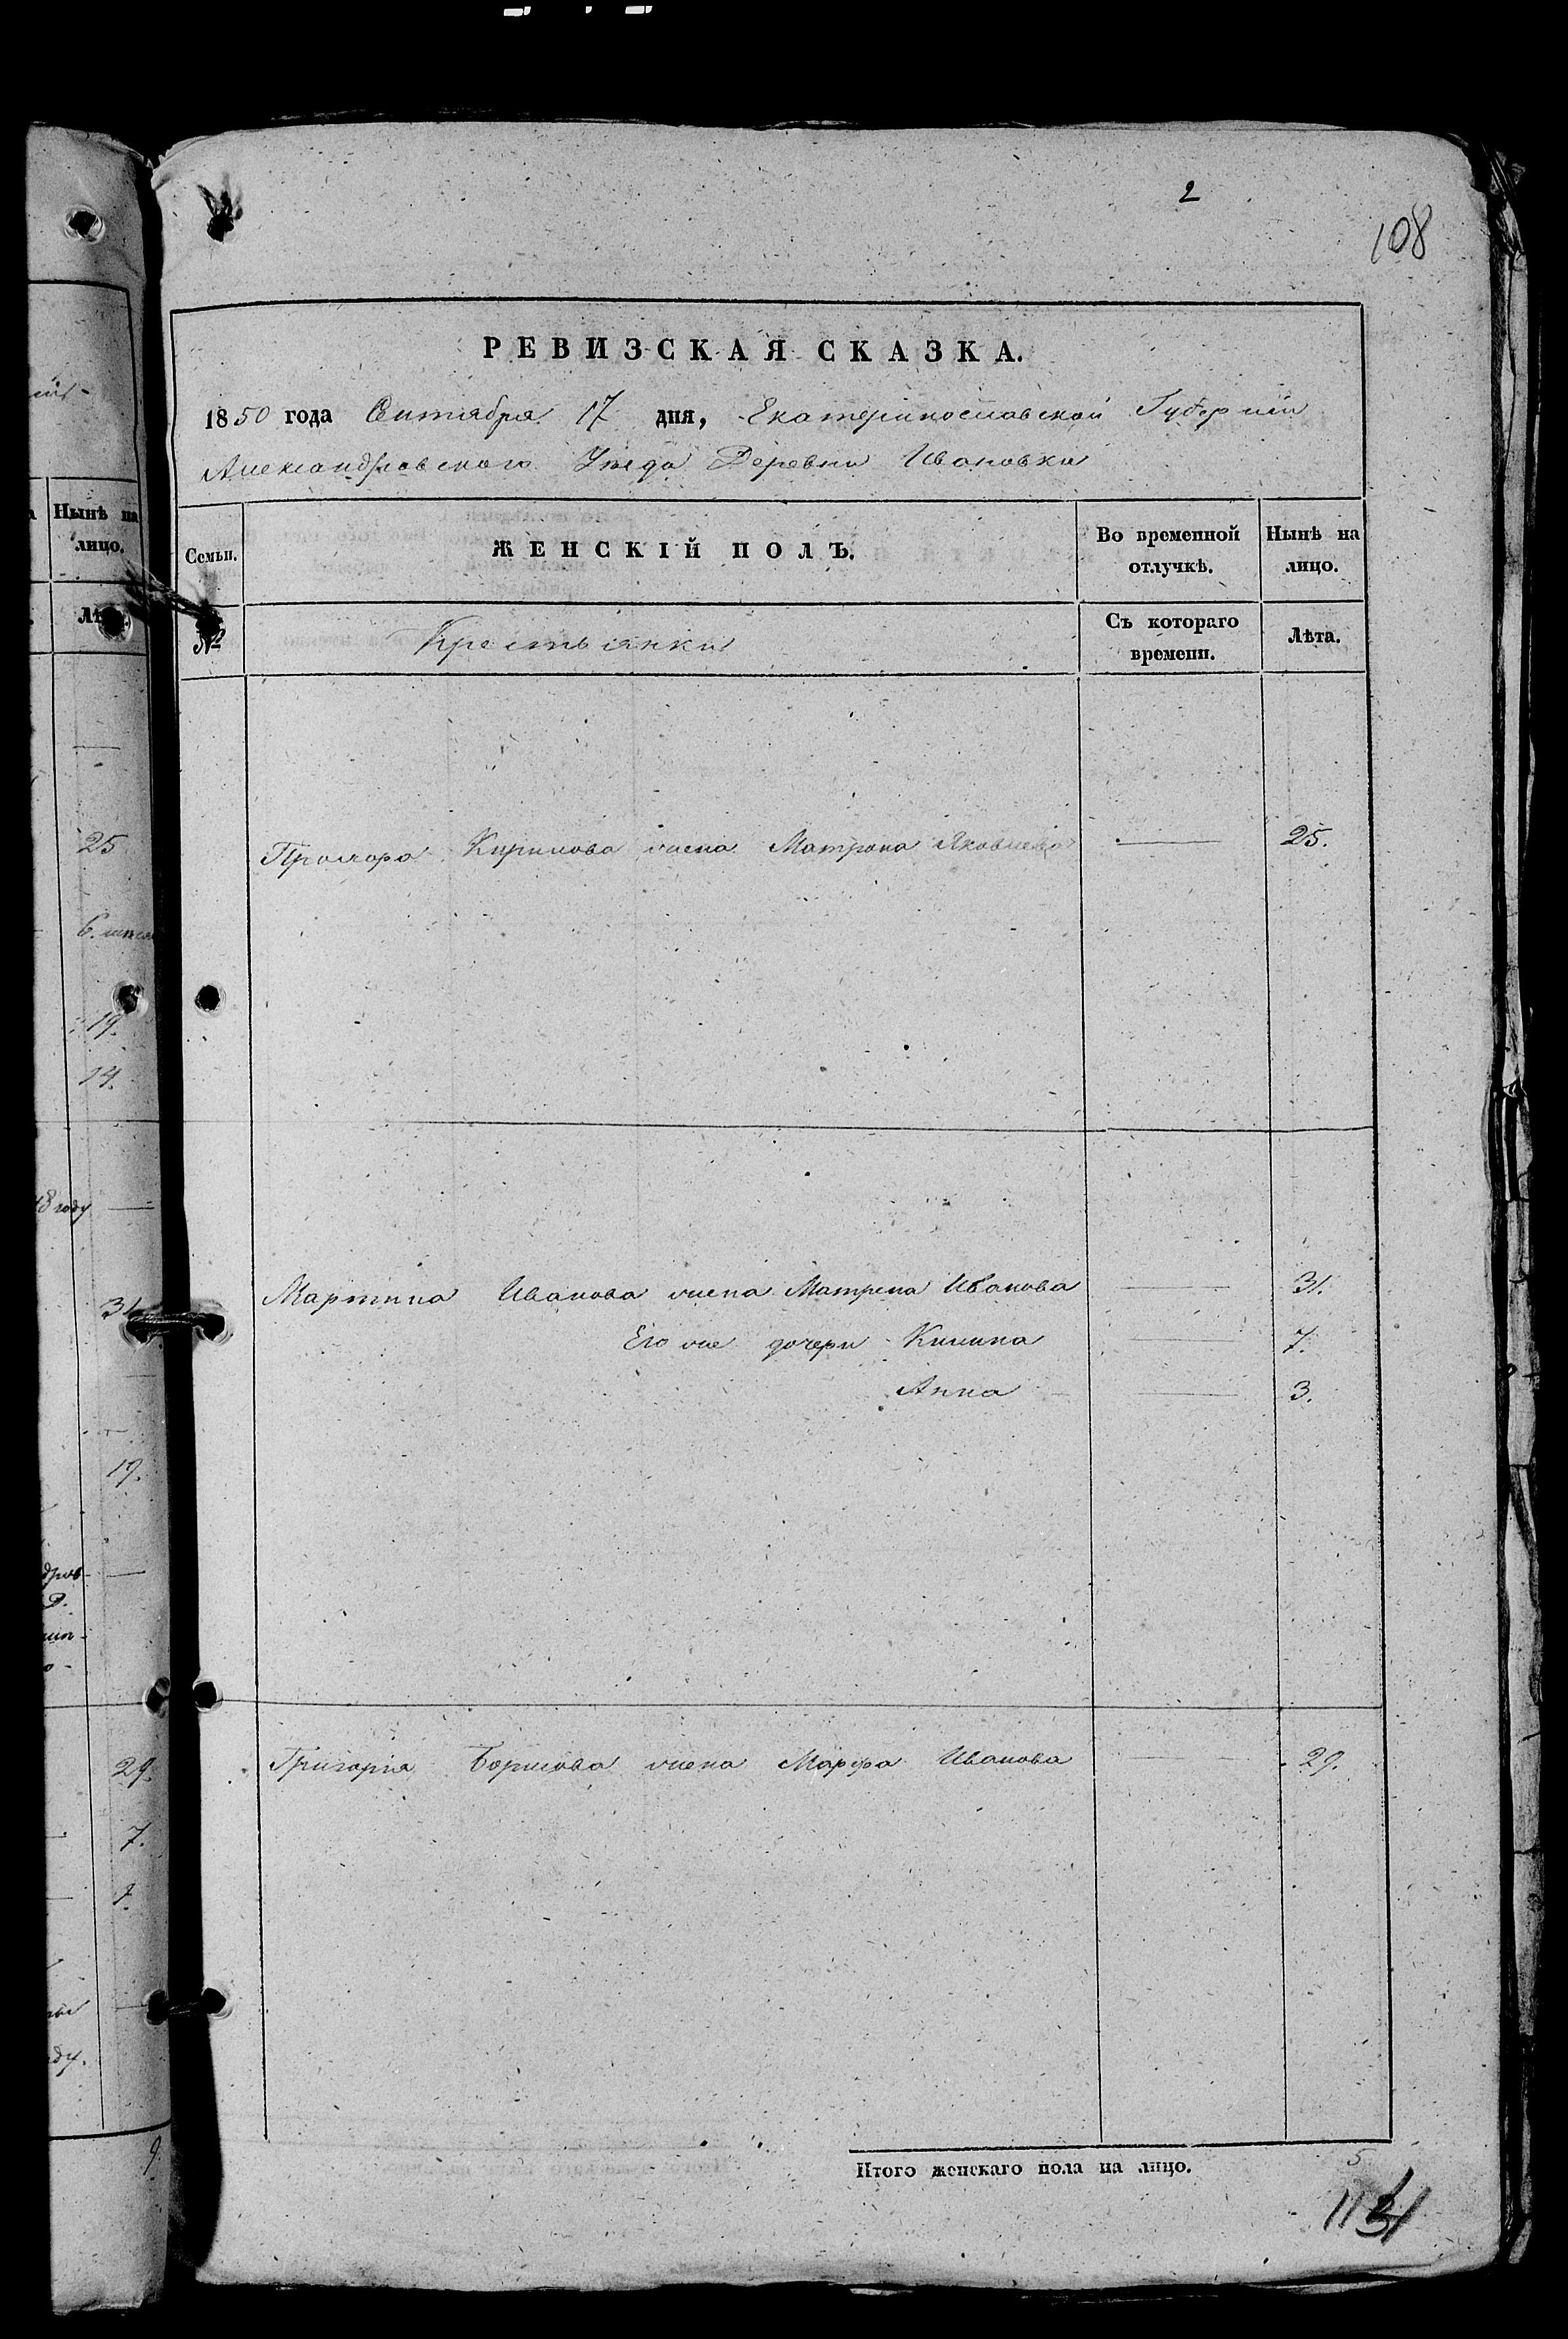 2
108
РЕВИЗСКАЯ СКАЗКА.
1850 года Сентября 17 дня, Екатеринославской Губерніи
Александровского Уѣзда Деревни Ивановки
Семьи.
ЖЕНСКІЙ ПОЛЪ.
Во временной отлучкѣ.
Нынѣ на лицо.
№
Крестьянки
Съ котораго времени.
Лѣта.
Прохора Кирилова жена Матрона Яковлева — 25.
Мартина Иванова жена Матрена Иванова — 31.
Его же дочери Килина — 7.
Анна — 3.
Григорія Борисова жена Марфа Иванова — 29.
Итого женскаго пола на лицо. 5
Нынѣ на
лицо.
25
19.
14.
48 году —
31
19.
29.
7.
9